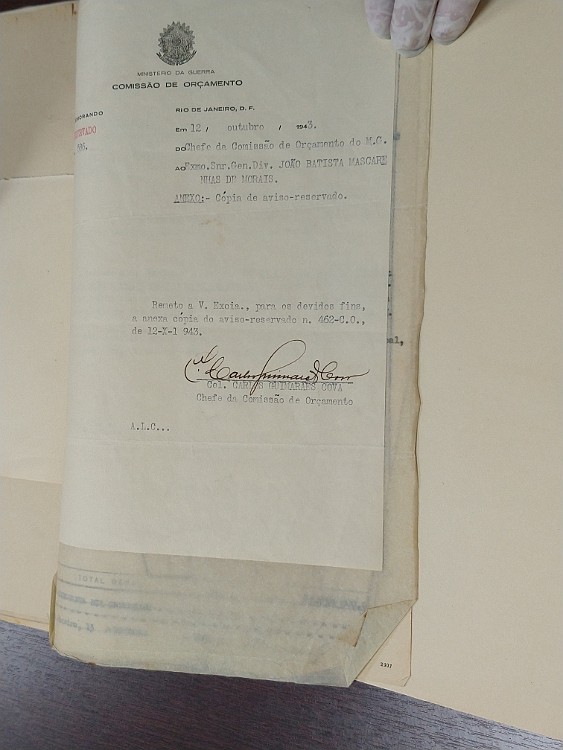 MINISTERIO DA GUERRA
COMISSÃO DE ORÇAMENTO
RIO DE JANEIRO, D. F.
Em 12 / outubro / 1943.
DO Chefe da Comissão de Orçamento do M.G.
AO Exmo.Snr.Gen.Div. JOÃO BATISTA MASCARE
NHAS DE MORAIS.
ANEXO:- Cópia de aviso-reservado.
Remeto a V. Excia., para os devidos fins,
a anexa cópia do aviso-reservado n. 462-C.O.,
de 12-X-1 943.
Cel. CARLOS GUIMARAES COVA
Chefe da Comissão de Orçamento
A.L.C...
TOTAL